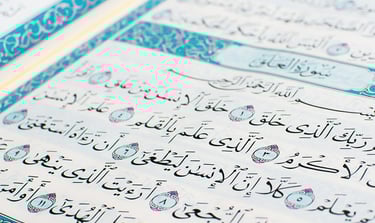 سُورَةُ الْعَلَقِ
بِسْمِ ٱللَّهِ ٱلرَّحْمَٰنِ ٱلرَّحِيمِ
رَبِّكَ ٱلَّذِى خَلَقَ ١ خَلَقَ ٱلْإِنسَٰنَ مِنْ عَلَقٍ ٢ ٱقْرَأْ
ٱلْأَكْرَمُ ٣ ٱلَّذِى عَلَّمَ بِٱلْقَلَمِ ٤ عَلَّمَ ٱلْإِنسَٰنَ
يَعْلَمْ ٥ كَلَّآ إِنَّ ٱلْإِنسَٰنَ لَيَطْغَىٰٓ ٦ أَن رَّءَاهُ ٱسْتَغْنَىٰٓ ٧
ٱلرُّجْعَىٰٓ ٨ أَرَءَيْتَ ٱلَّذِى يَنْهَىٰ ٩
ٱلْهُدَىٰٓ ١١ أَوْ أَمَرَ